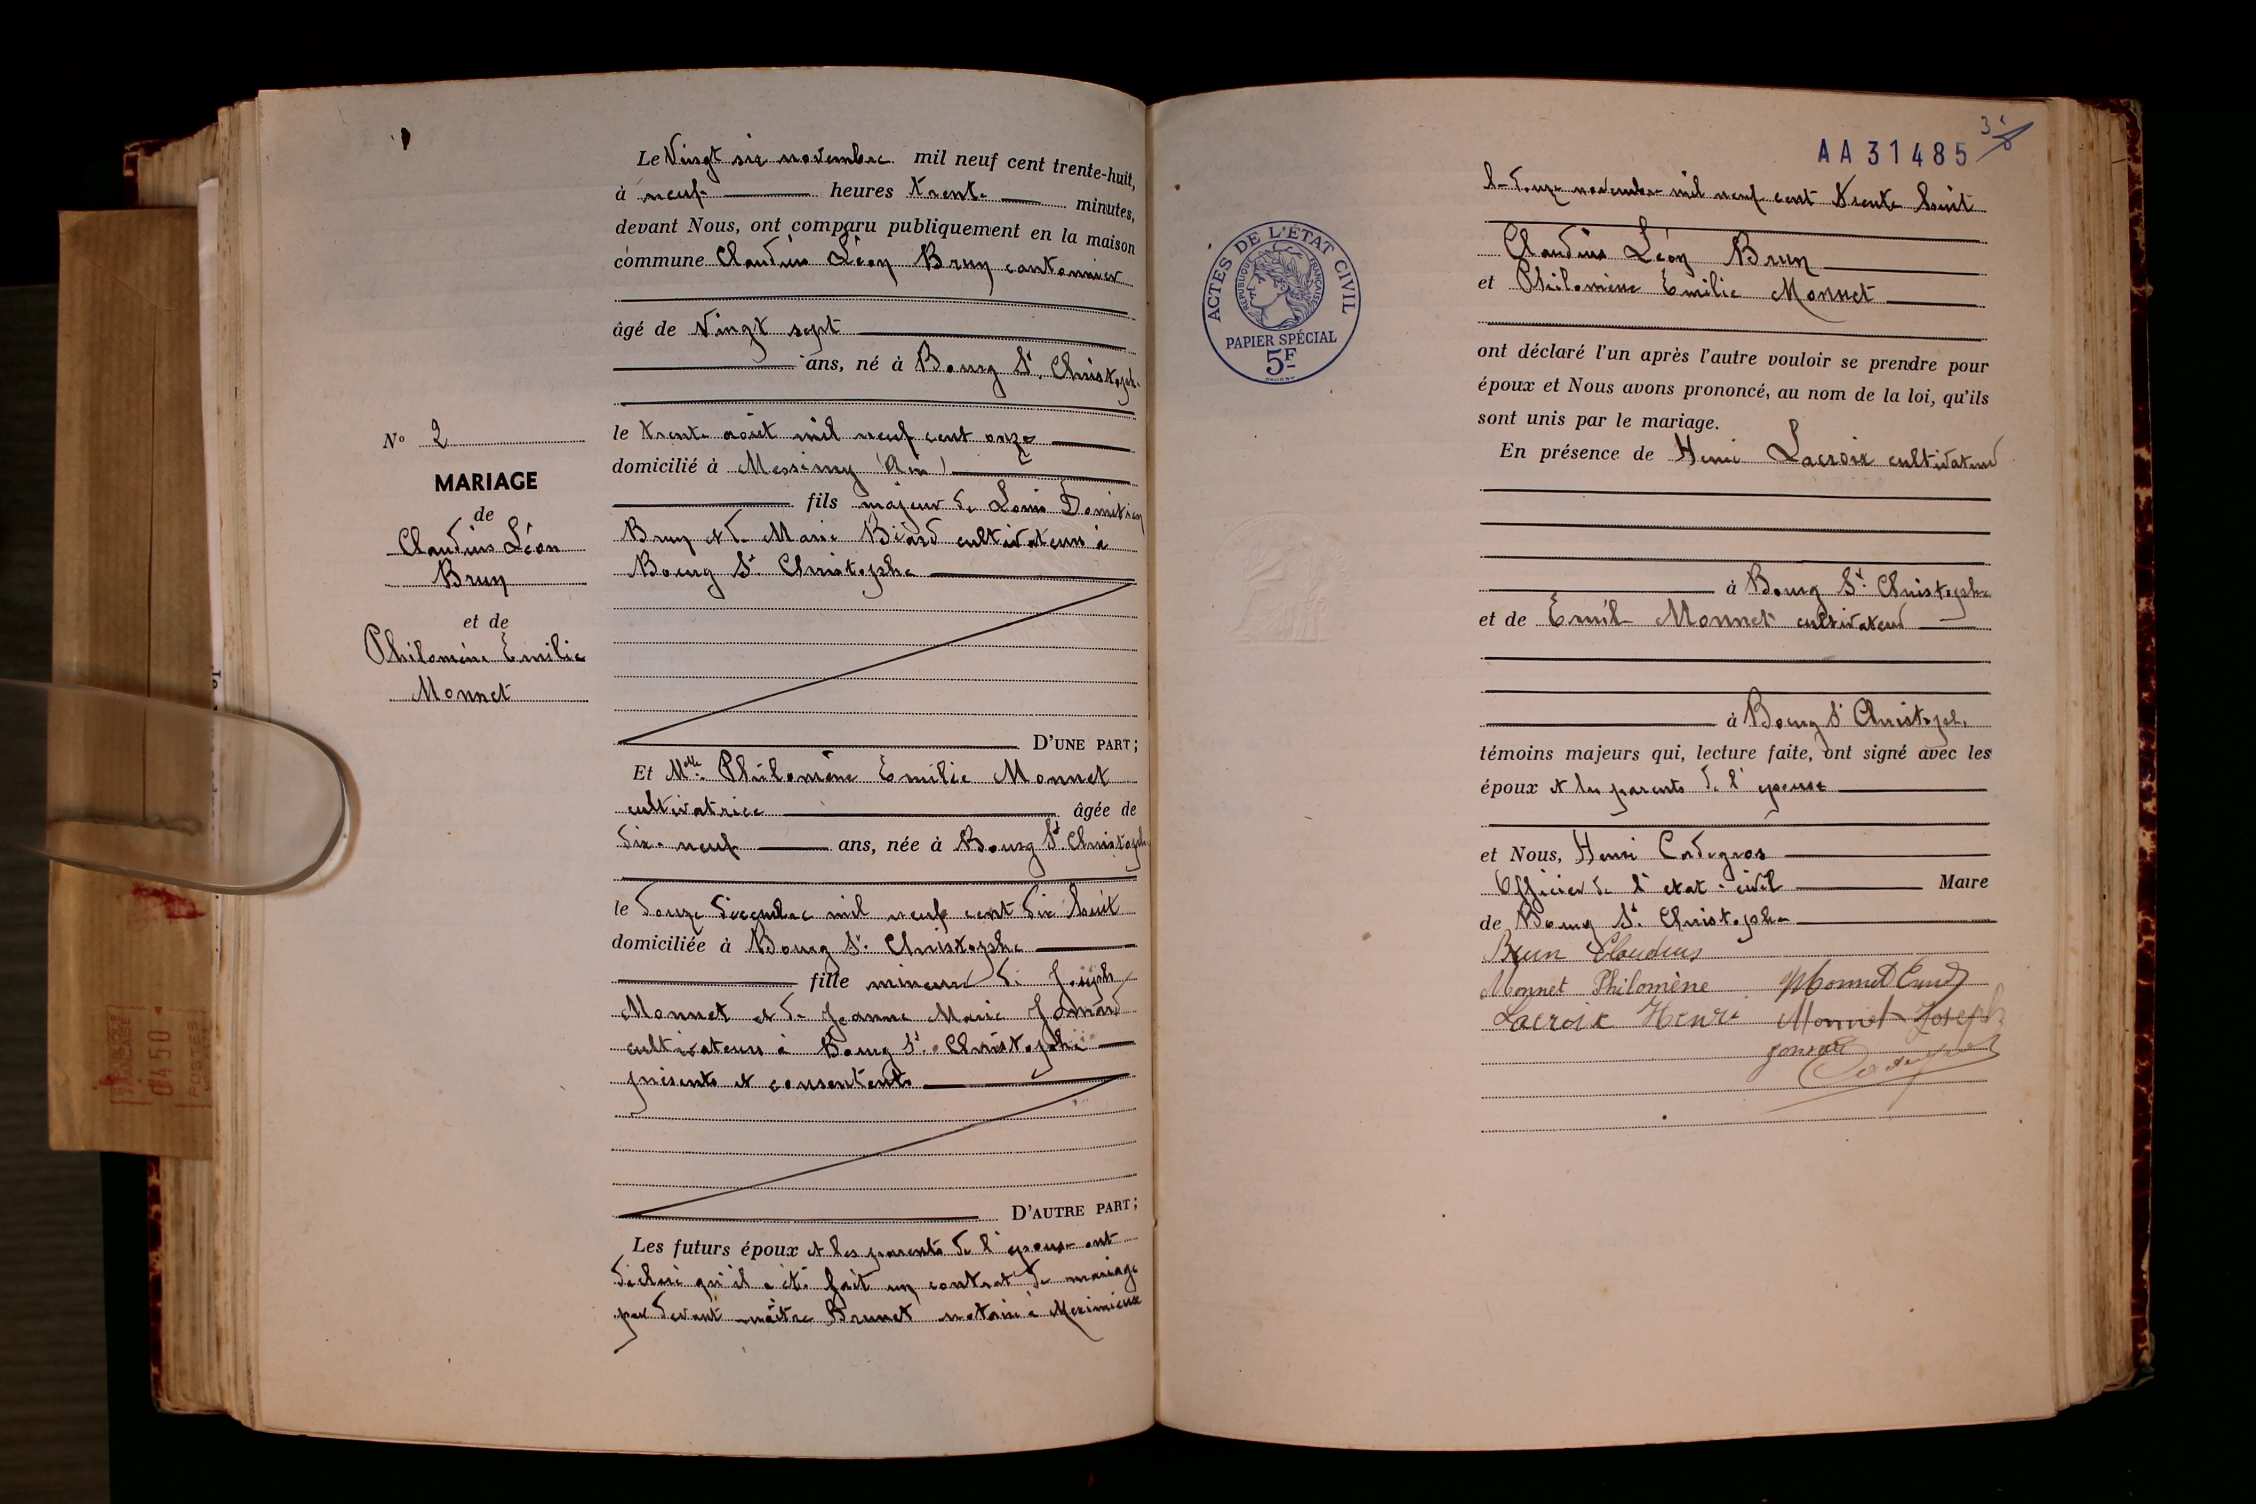 Le Vingt six novembre mil neuf cent trente-huit,
à neuf heures trente minutes,
devant Nous, ont comparu publiquement en la maison
commune Claudius Léon Brun cantonnier
âgé de Vingt sept
ans, né à Bourg St. Christophe
le trente août mil neuf cent onze
domicilié à Messimy (Ain)
fils majeur de Louis Domitien
Brun et de Marie Béard cultivateurs à
Bourg St Christophe
D'UNE PART;
Et Melle Philomène Emilie Monnet
cultivatrice âgée de
dix-neuf ans, née à Bourg St. Christophe
le douze décembre mil neuf cent dix huit
domiciliée à Bourg St. Christophe
fille mineure de Joseph
Monnet et de Jeanne Marie
cultivateurs à Bourg St. Christophe
présents et consentents
D'AUTRE PART;
Les futurs époux et les parents de l'épouse ont
déclaré qu'il a été fait un contrat de mariage
par devant maître Brunet notaire à Meximieux
N° 2
MARIAGE
de
Claudius Léon
Brun
et de
Philomène Emilie
Monnet
AA 31485
le douze novembre mil neuf cent trente huit
Claudius Léon Brun
et Philomène Emilie Monnet
ont déclaré l'un après l'autre vouloir se prendre pour
époux et Nous avons prononcé, au nom de la loi, qu'ils
sont unis par le mariage.
En présence de Henri Lacroix cultivateur
à Bourg St. Christophe
et de Emile Monnet cultivateur
à Bourg St Christophe
témoins majeurs qui, lecture faite, ont signé avec les
époux et les parents de l'épouse
et Nous, Henri Cadegros
Officier de l'état-civil Maire
de Bourg St. Christophe
Brun Claudius
Monnet Philomène Monnet Emile
Lacroix Henri Monnet Joseph
ACTES DE L'ÉTAT CIVIL
RÉPUBLIQUE FRANÇAISE
PAPIER SPÉCIAL
5F
0450
POSTES